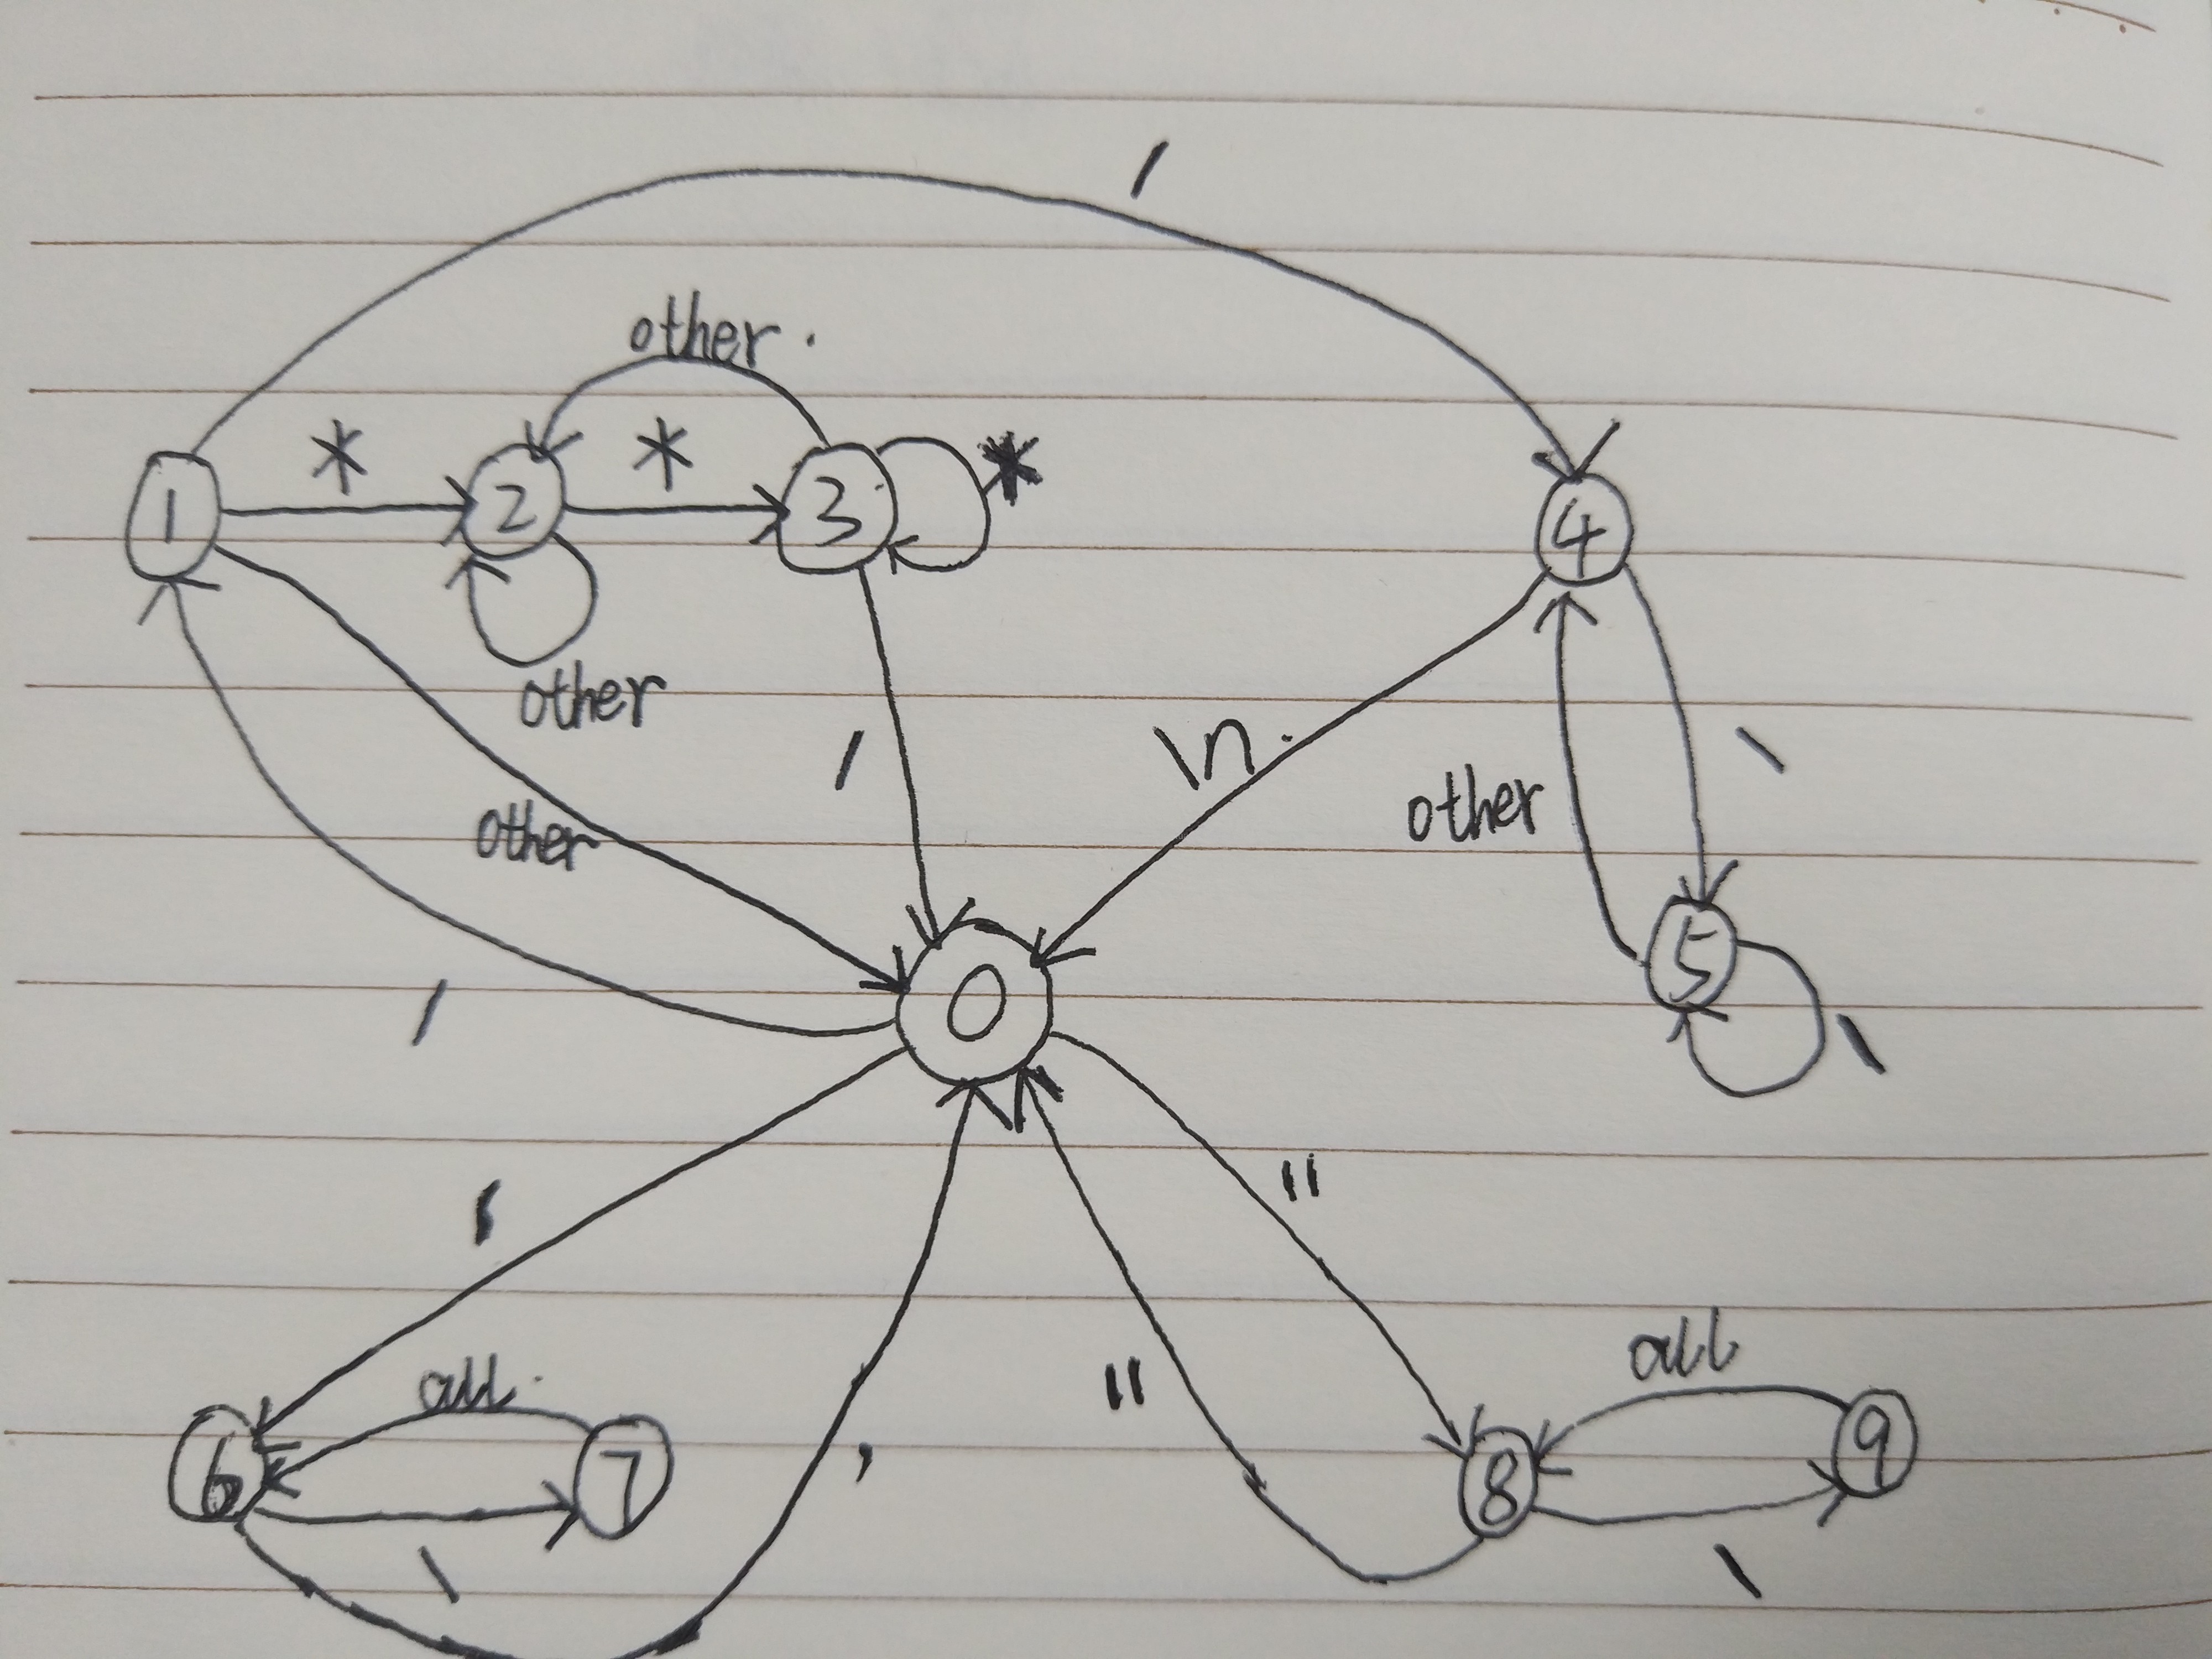 /
other.
* * *
1 2 3 4
other
/ \n. \
other other
5
0
/ \
' "
all
" all.
9
6 7 ' 8
\ \